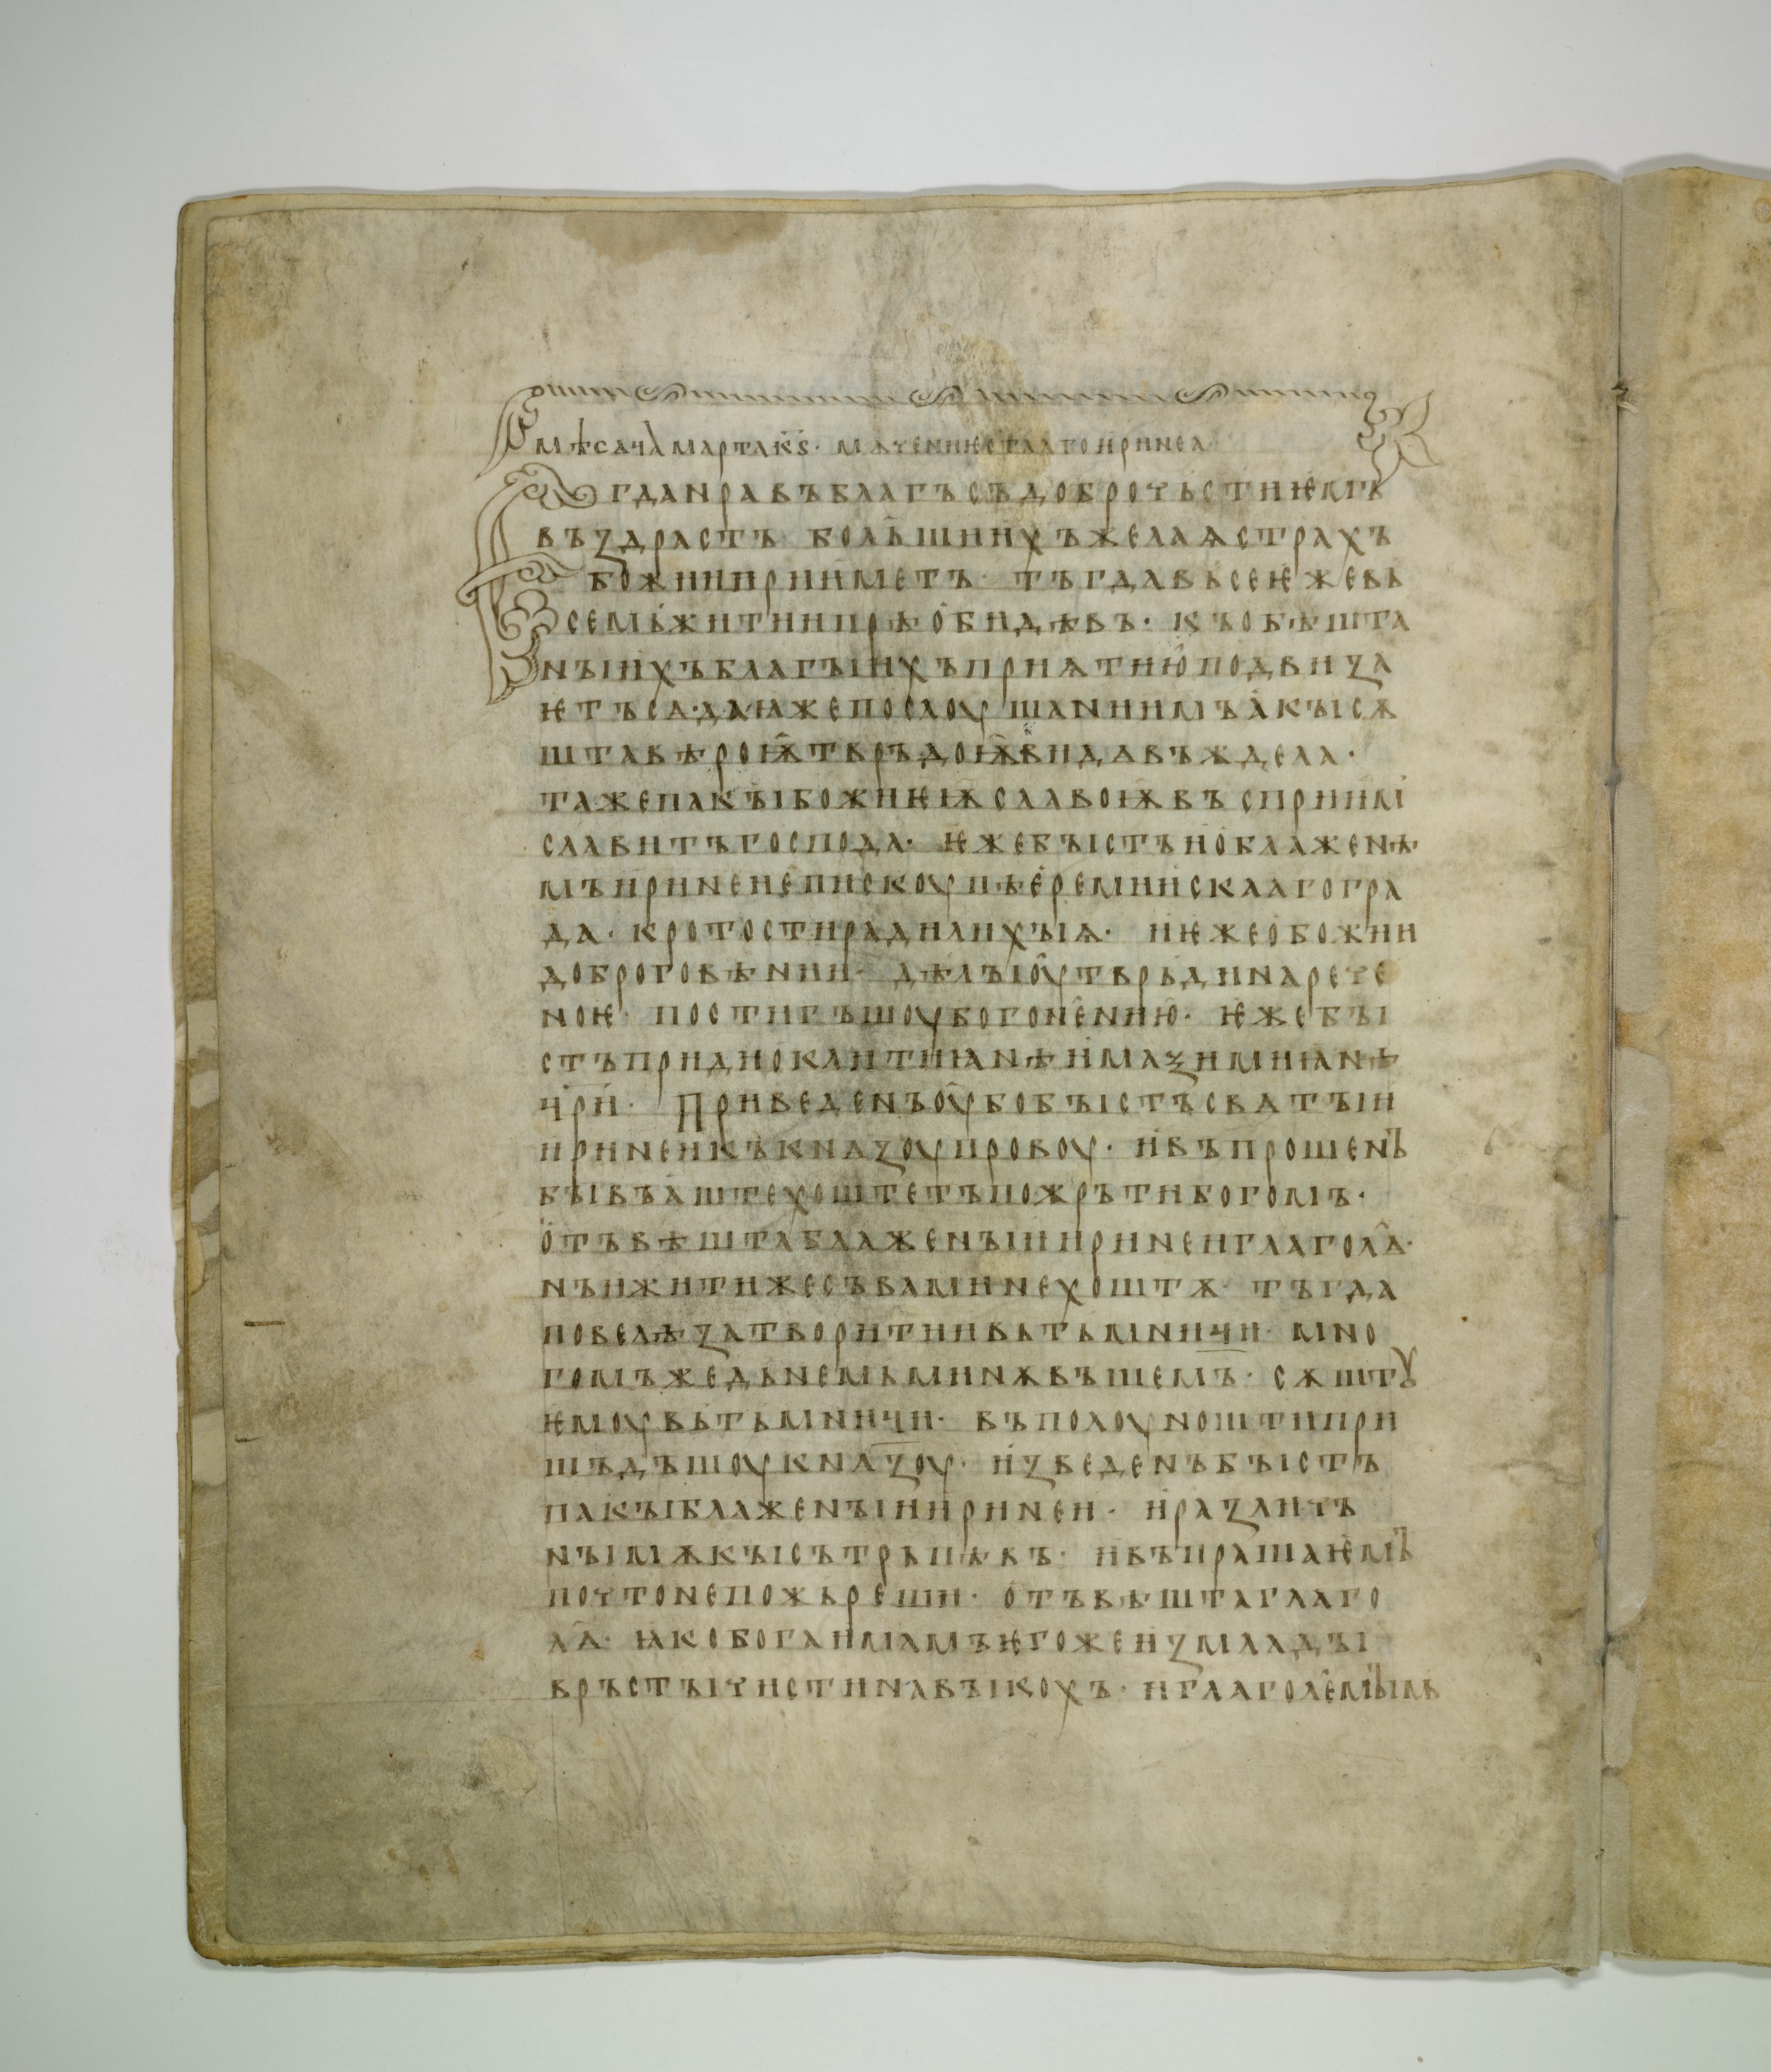 мѣсѧца марта к҃ѕ · мѫчение стааго иринеа
Ѥгда нравъ благъ съ доброчьстиѥмь
въздрастъ больш҄иихъ желаѩ страхъ
божии прииметъ · тъгда вьсе ѥже вь
семь житии прѣобидѣвъ · къ обѣшта
ныихъ благыихъ приѩтию подвиза
ѥтъ сѧ · да ꙗже послоушаниимь акы сѫ
шта вѣроѭ тврьдоѭ видѧ въждела ·
та же пакы божиѥѭ славоѭ въсприимъ
славитъ господа · ѥже быстъ и о блаженѣ
мь иринеи епискоупѣ сремиискааго гра
да · кротости ради лихыѩ · и ѥже о божии
доброговѣнии · дѣлы оутврьди нарече
ноѥ · постигъшоу бо гонению · ѥже бы
стъ при диоклитиꙗнѣ и маѯимиꙗнѣ
ц҃ри · Приведенъ оубо быстъ свѧтыи
иринеи къ кнѧзоу провоу · и въпрошенъ
бывъ аште хоштетъ пожрьти богомъ ·
отъвѣшта блаженыи иринеи глаголѧ ·
нъ и жити же съ вами не хоштѫ · тъгда
повелѣ затворити и вь тьмници · мно
гомъ же дьнемъ минѫвъшемъ · сѫштꙋ
ѥмоу вь тьмници · въ полоу ношти при
шъдъшоу кнѧзоу · изведенъ быстъ
пакы блаженыи иринеи · и различь
ны мѫкы сътрьпѣвъ · и въпрашаѥмъ
почто не пожьреши · отъвѣшта глаго
лѧ · ꙗко бога имамъ ѥгоже из млады
връсты чисти навыкохъ · и глаголемыимь